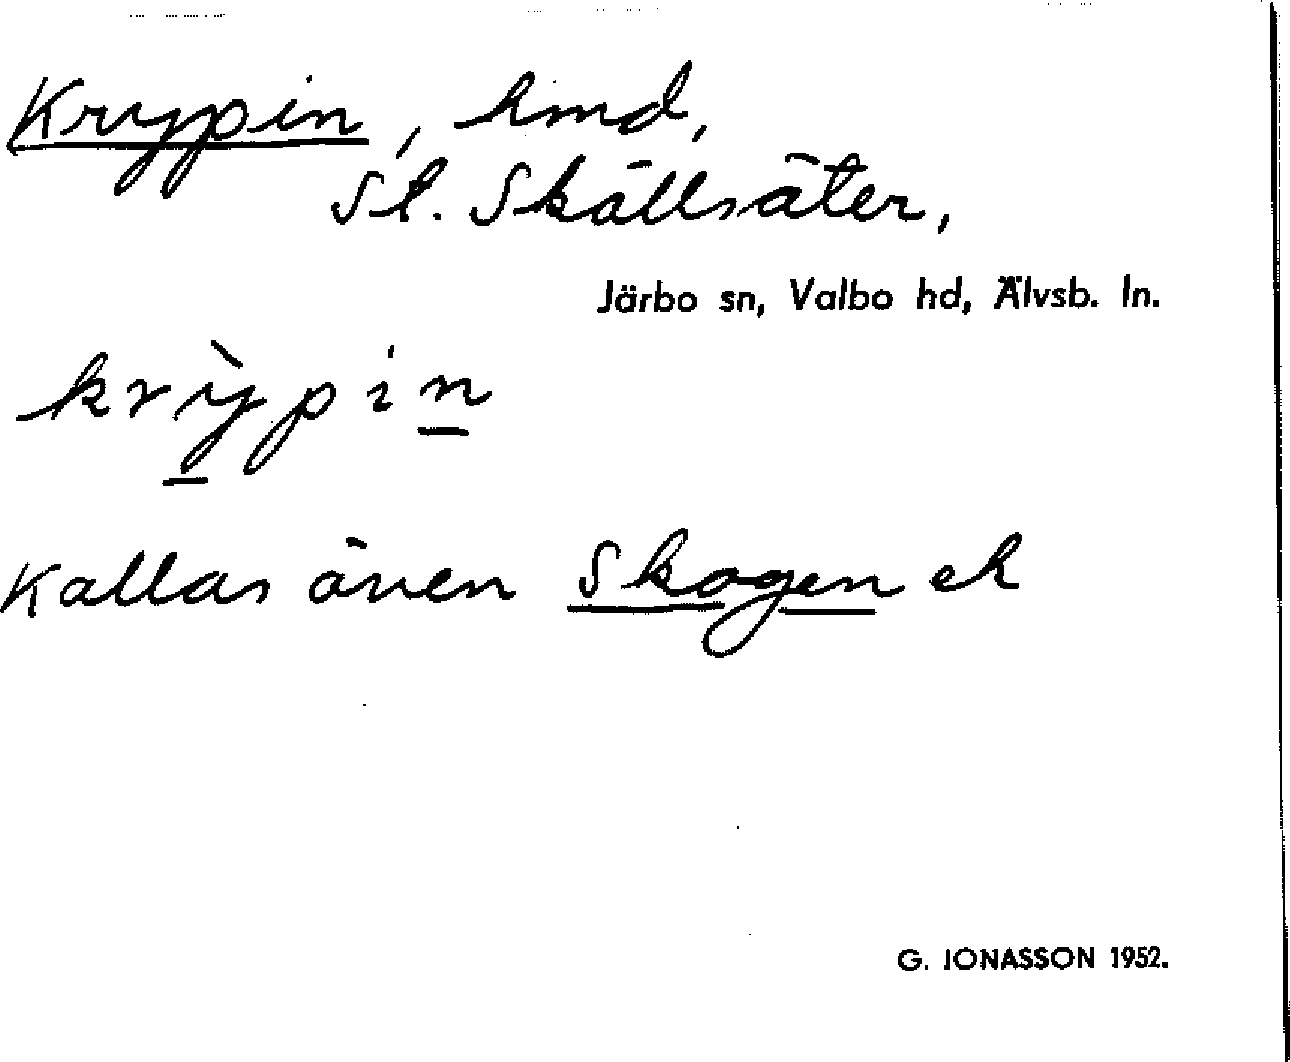 Krypin, hmd,
St. Skällsäter,
Järbo sn, Valbo hd, Älvsb. ln.
krỳpin
Kallas även Skogen ek
G. JONASSON 1952.